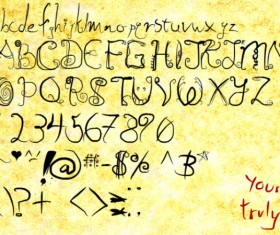 abcdefghijklmnopqrstuvwxyz
ABCDEFGHIJKLMN
OPQRSTUVWXYZ
1234567890
!@#$%^B*
\?+<>=:
Your
truly